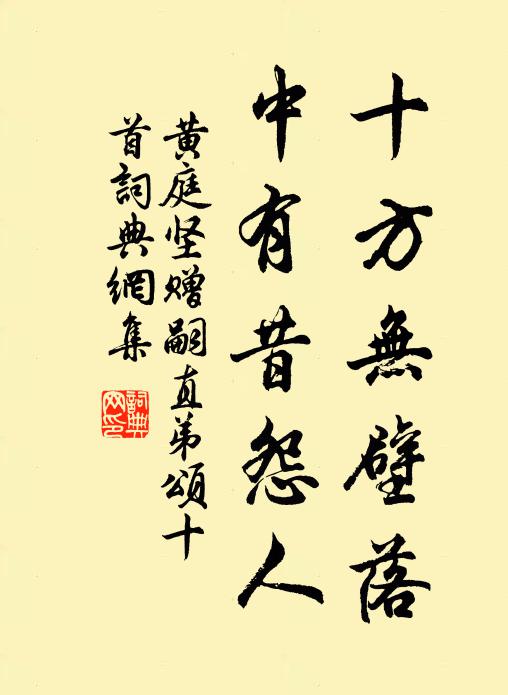 十方無壁落
中有昔怨人
黄庭坚贈嗣直弟頌十
首詞典網集
詞典网印